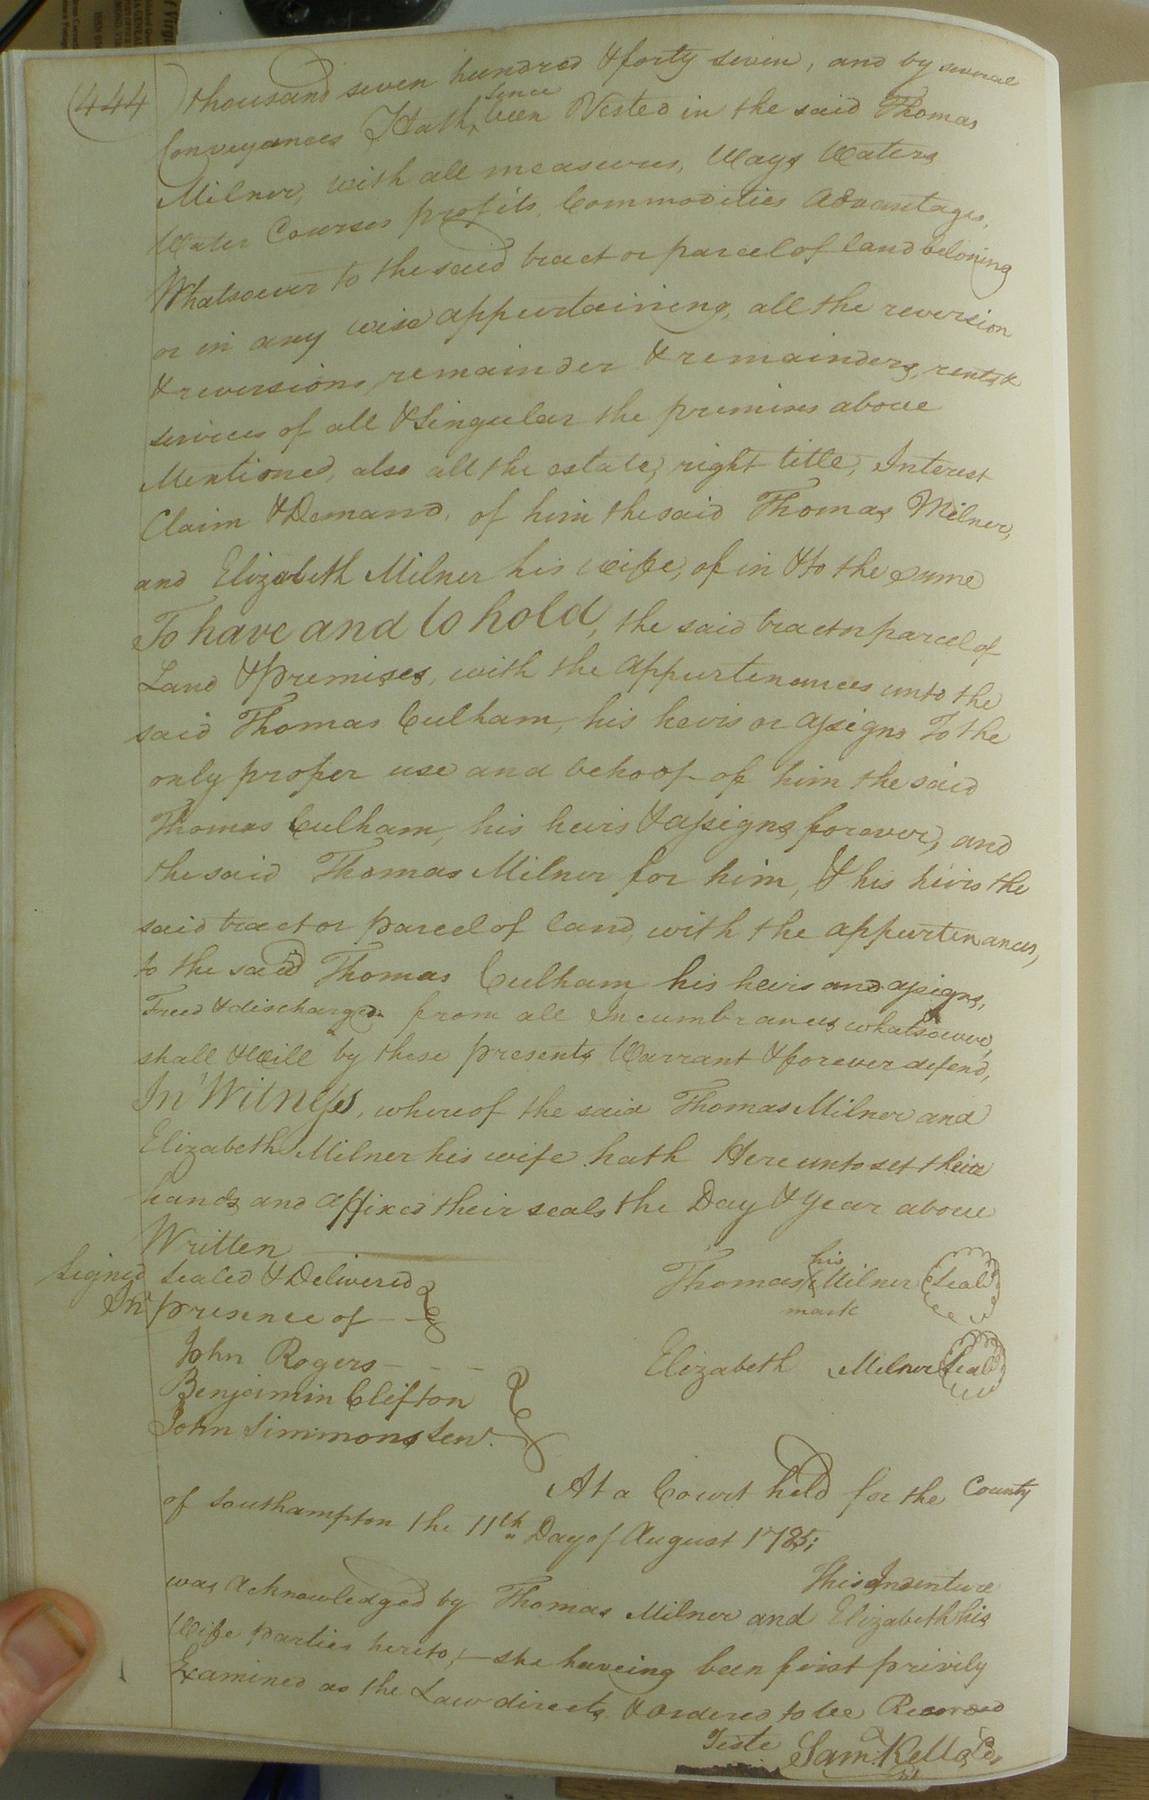 (444)
thousand seven hundred & forty seven, and by several
Conveyances Hath since been Vested in the said Thomas
Milner, with all measures, Ways Waters
Water Courses profits, Commodities Advantages,
Whatsoever to the said tract or parcel of land beloning
or in any wise appurtaining, all the reversion
& reversions, remainder & remainders, rents &
services of all & Singular the premises above
Mentioned, also all the estate, right title, Interest
Claim & Demand, of him the said Thomas Milner,
and Elizabeth Milner his wife, of in & to the same
To have and to hold, the said tract or parcel of
Land & premises, with the appurtenances unto the
said Thomas Culham, his heirs or assigns To the
only proper use and behoof of him the said
Thomas Culham, his heirs & assigns forever, and
the said Thomas Milner for him, & his heirs the
said tract or parcel of land, with the appurtenances,
to the said Thomas Culham his heirs and assigns,
Freed & discharged from all Incumbrances whatsoever,
shall & Will by these presents Warrant & forever defend,
In Witness, whereof the said Thomas Milner and
Elizabeth Milner his wife hath Hereunto set their
hands and affixed their seals the Day & Year above
Written
Signed Sealed & Delivered
In presence of
John Rogers
Benjamin Clifton
John Simmons Senr.
his
Thomas Milner Seal
mark
Elizabeth Milner Seal
At a Court held for the County
of Southampton the 11th Day of August 1785;
This Indenture
was Acknowledged by Thomas Milner and Elizabeth his
Wife parties hereto, she haveing been first privily
Examined as the Law directs & ordered to be Recorded
Teste Saml. Kello